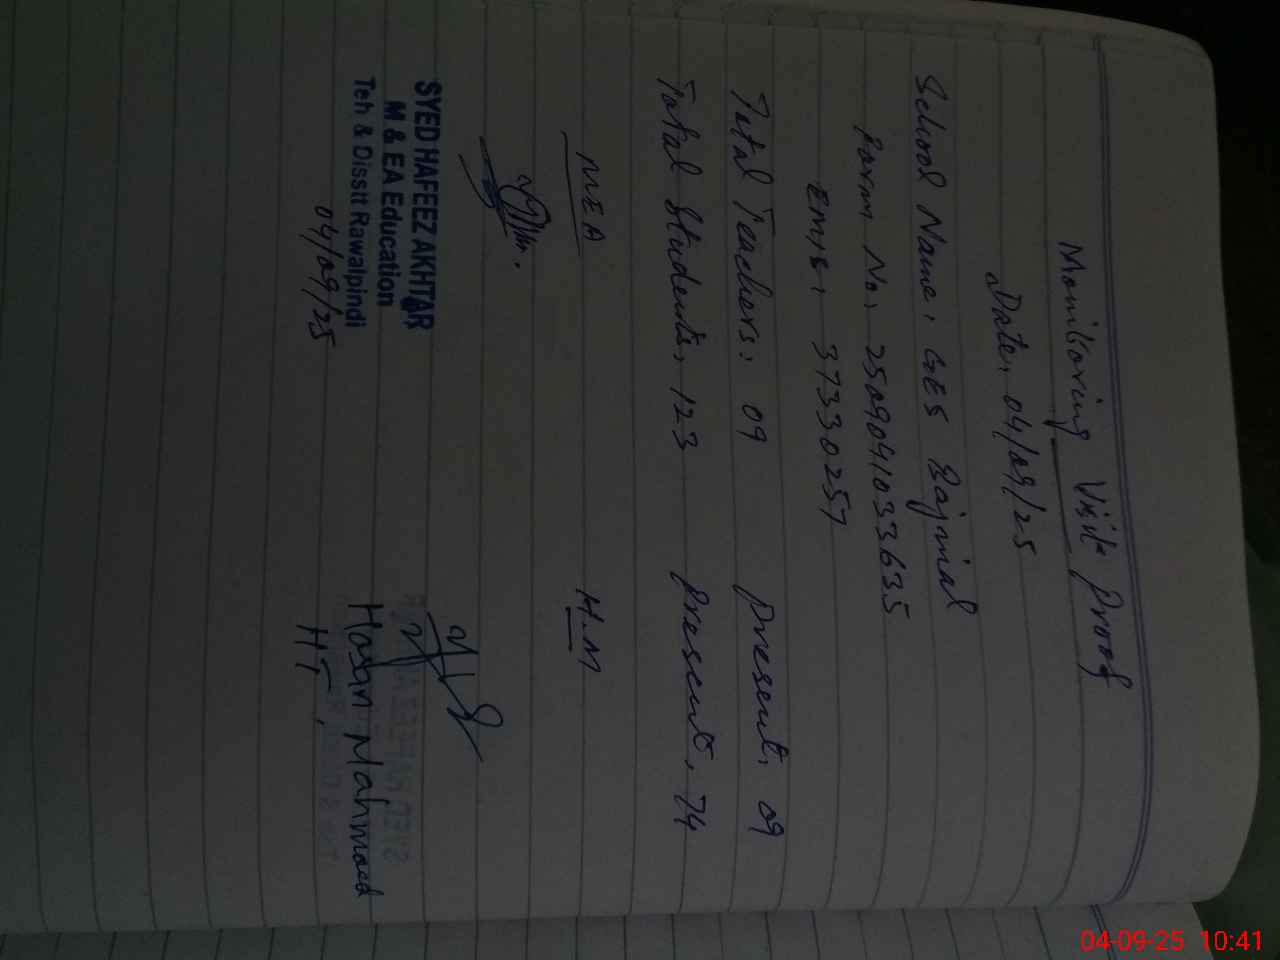 Monitoring Visit Proof
Date, 04/09/25
School Name, GES Bajnial
Form No, 2509041033635
Emis, 37330257
Total Teachers: 09 Present, 09
Total Students, 123 Present, 74
MEA H.M
SYED HAFEEZ AKHTAR
M & EA Education
Teh & Disstt Rawalpindi
04/09/25
Hasan Mahmood
HT,
04-09-25 10:41